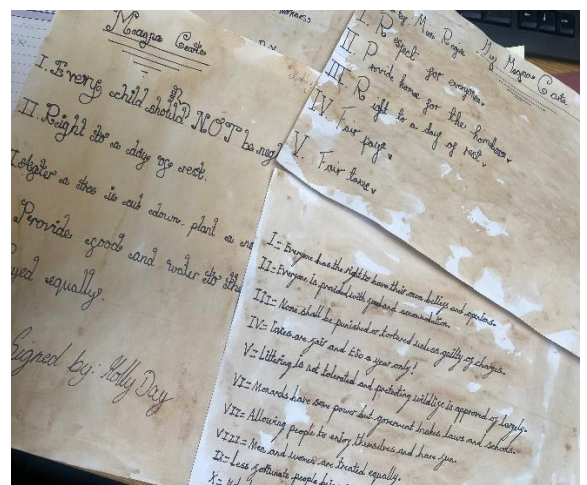 Magna Carta
I. Every child should NOT be
II. Right to a day of rest.
after a tree is cut down, plant a
Provide food and water to the
equally.
Signed by: Holly Day
My Magna Carta
I. Respect for everyone.
II. Provide home for the homeless.
III. Right to a day of rest.
IV. Fair pays.
V. Fair taxes.
I= Everyone has the right to have their own beliefs and opinions.
II= Everyone is provided with food and accommodation.
III= None shall be punished or tortured unless guilty of charges.
IV= Taxes are fair and £150 a year only!
V= Littering is not tolerated and protecting wildlife is approved of largely.
VI= Monarchs have some power but government makes laws and schools.
VII= Allowing people to enjoy themselves and have fun.
VIII= Men and women are treated equally.
IX= Less fortunate people
X=